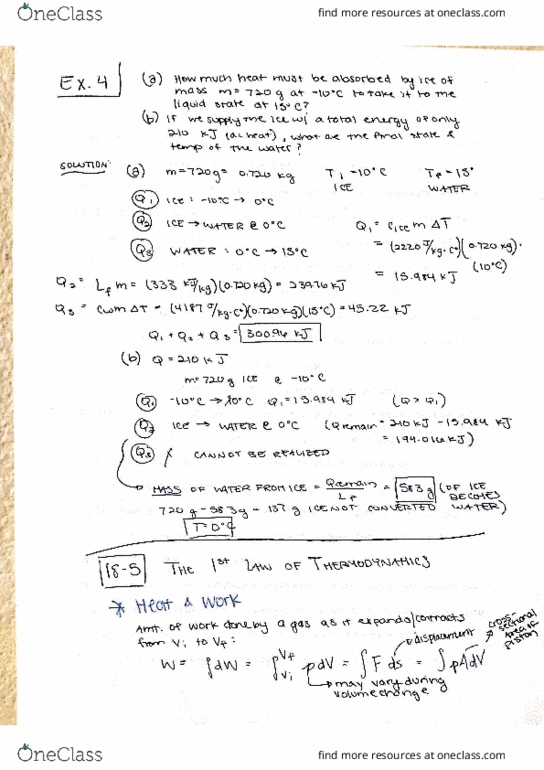 OneClass
find more resources at oneclass.com
Ex. 4
(a) How much heat must be absorbed by ice of
mass m = 720 g at -10°C to take it to the
liquid state at 15°C?
(b) If we supply the ice w/ a total energy of only
210 kJ (as heat), what are the final state &
temp of the water?
SOLUTION: (a) m=720g = 0.720 kg Ti -10°C Tf = 15°
ICE WATER
Q1 ICE: -10°C → 0°C
Q2 ICE → WATER @ 0°C Q1 = cice m ΔT
Q3 WATER: 0°C → 15°C = (2220 J/kg·C°)(0.720 kg)·
(10°C)
= 15.984 kJ
Q2 = Lf m = (333 kJ/kg)(0.720 kg) = 239.76 kJ
Q3 = cw m ΔT = (4187 J/kg·C°)(0.720 kg)(15°C) = 45.22 kJ
Q1 + Q2 + Q3 = 300.96 kJ
(b) Q = 210 kJ
m= 720 g ICE @ -10°C
Q1 -10°C → 0°C Q1 = 15.984 kJ (Q > Q1)
Q2 ICE → WATER @ 0°C (Qremain = 210 kJ - 15.984 kJ
= 194.016 kJ)
Q3 CANNOT BE REALIZED
MASS OF WATER FROM ICE = Qremain/Lf = 583 g (OF ICE
BECOMES
WATER)
720 g - 583 g = 137 g ICE NOT CONVERTED
T= 0°C
18-5 THE 1st LAW OF THERMODYNAMICS
* Heat & Work
Amt. of work done by a gas as it expands/contracts
from Vi to Vf:
displacement
cross-sectional area of piston
W = ∫dW = ∫Vi Vf p dV = ∫F ds = ∫pA dV
may vary during
volume change
OneClass
find more resources at oneclass.com